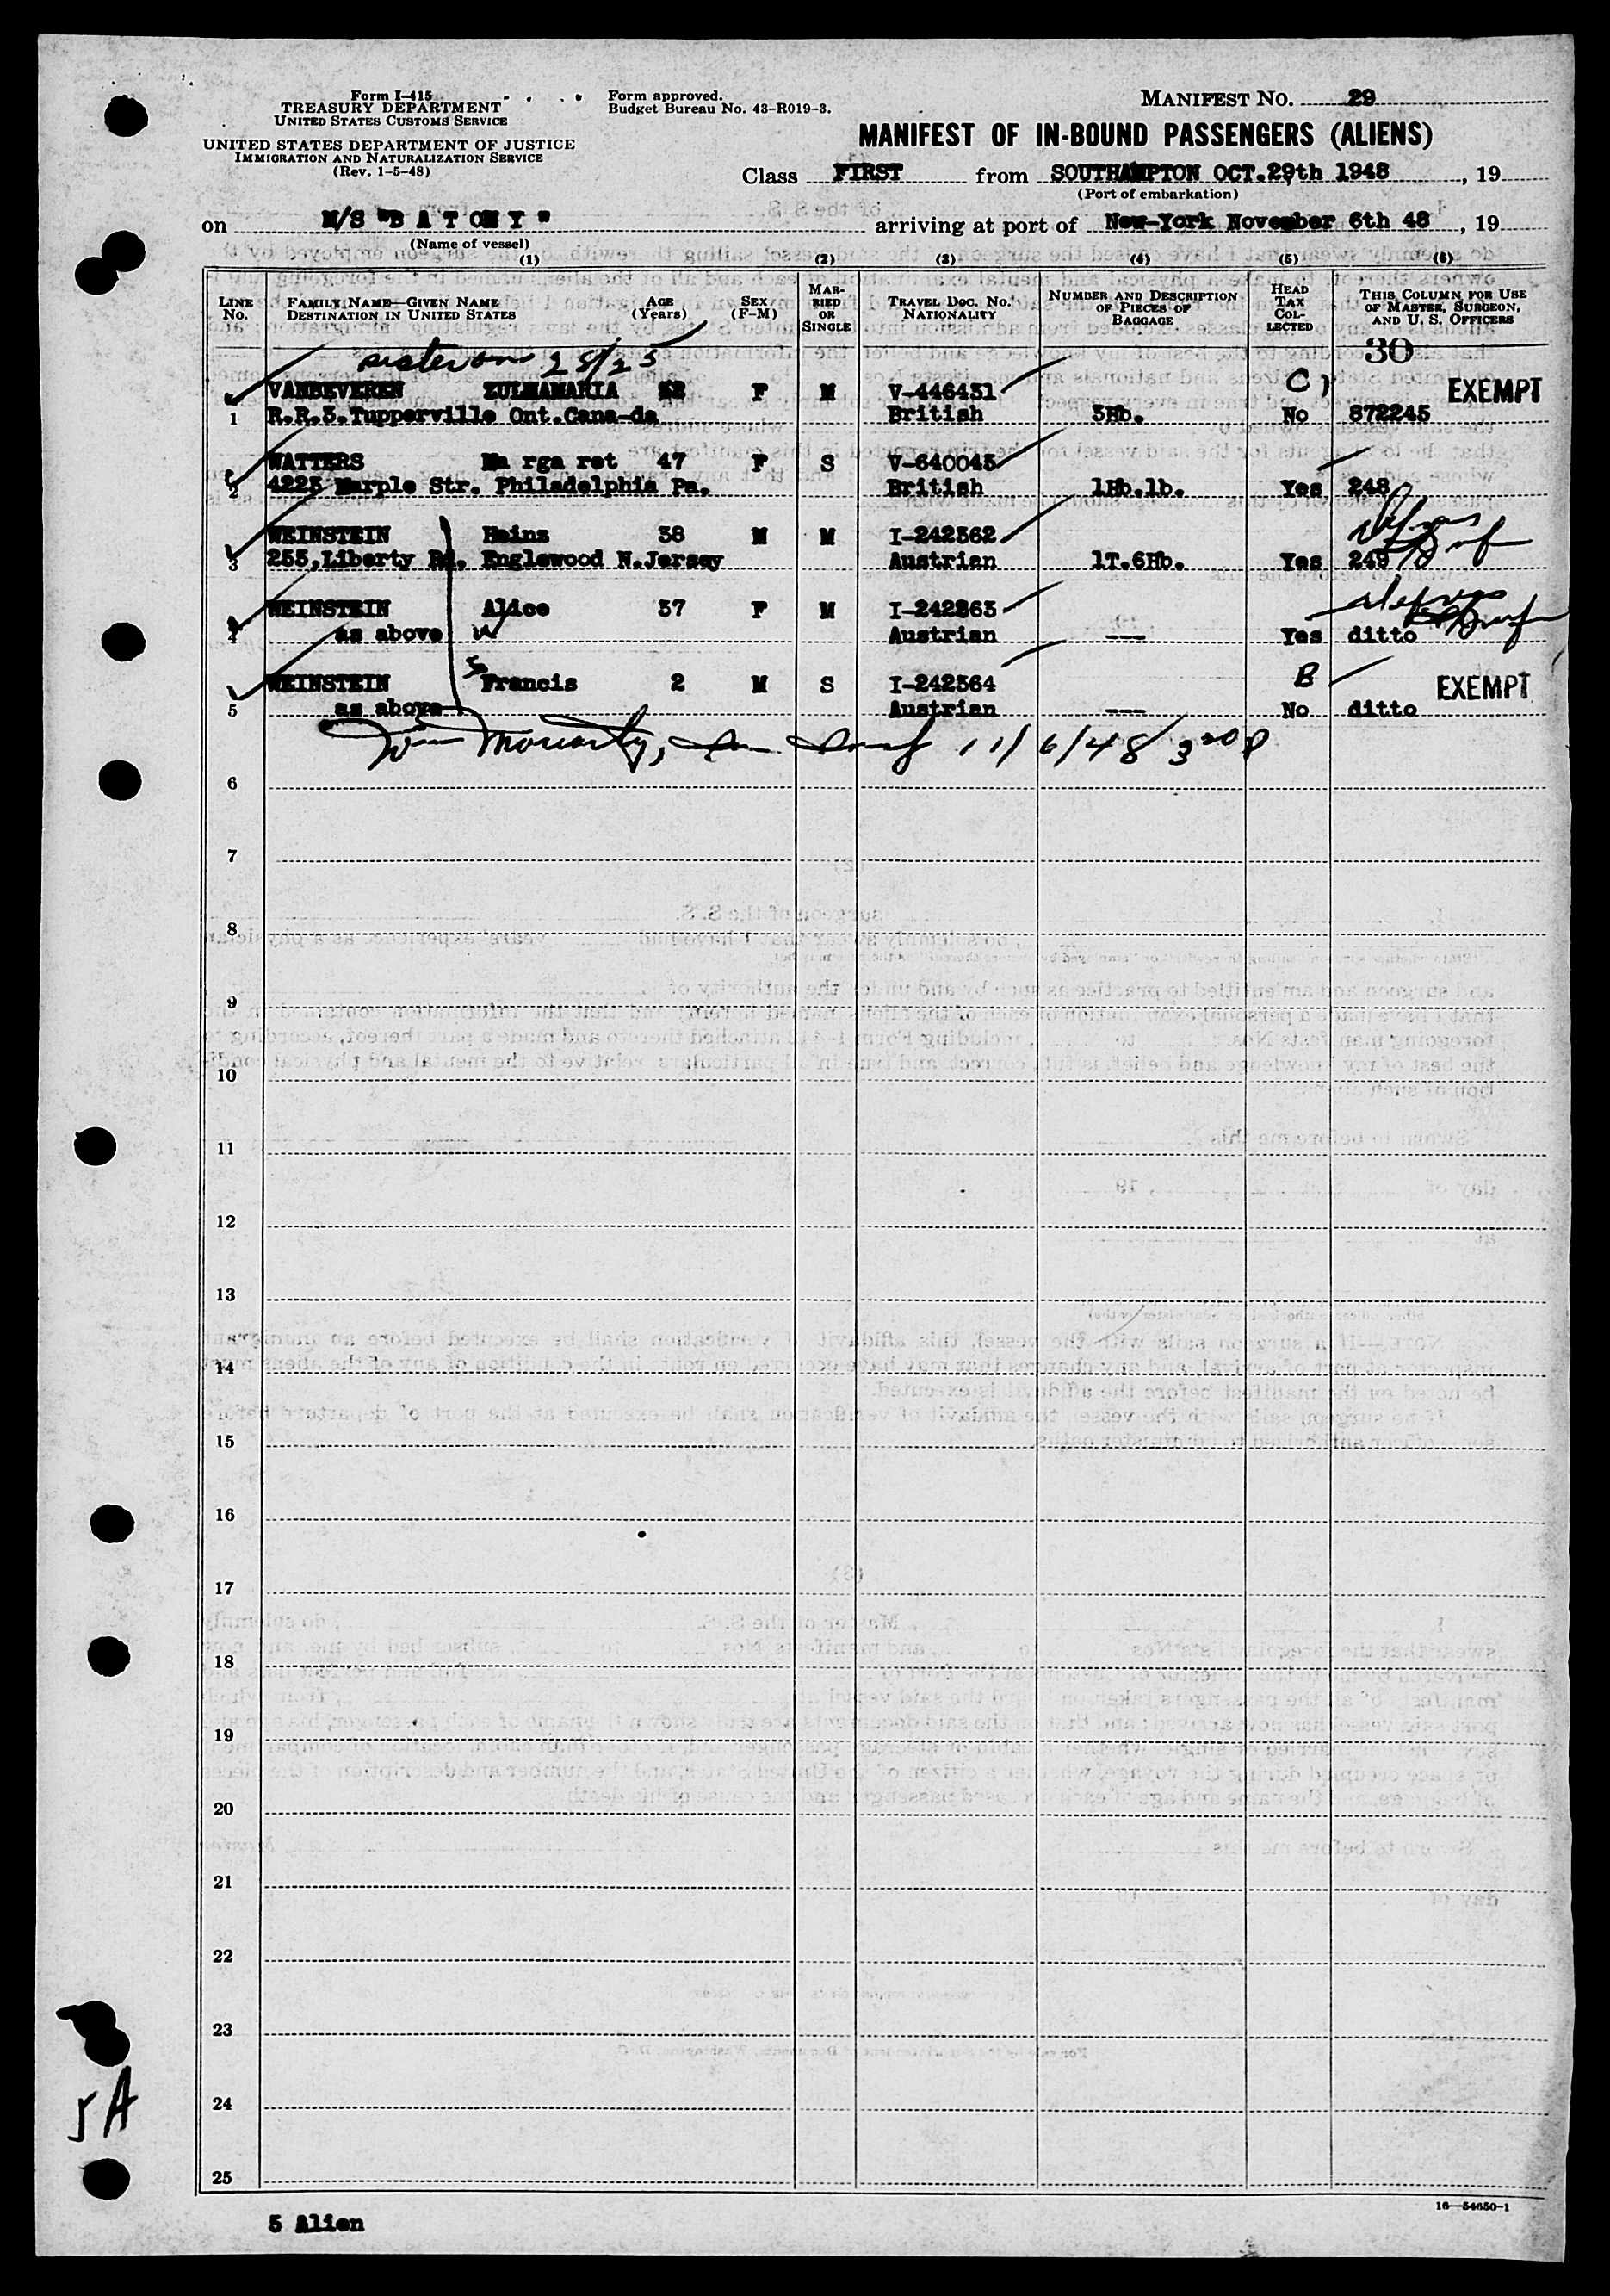 Form I-415
TREASURY DEPARTMENT
UNITED STATES CUSTOMS SERVICE
UNITED STATES DEPARTMENT OF JUSTICE
IMMIGRATION AND NATURALIZATION SERVICE
(Rev. 1-5-48)
Form approved.
Budget Bureau No. 43-R019-3.
MANIFEST NO. 29
MANIFEST OF IN-BOUND PASSENGERS (ALIENS)
Class FIRST from SOUTHAMPTON OCT.29th 1948, 19
(Port of embarkation)
on M/S "B A T O R Y" arriving at port of New-York November 6th 48, 19
(Name of vessel)
(1) (2) (3) (4) (5) (6)
LINE No.
FAMILY NAME—GIVEN NAME
DESTINATION IN UNITED STATES
AGE (Years)
SEX (F-M)
MARRIED OR SINGLE
TRAVEL DOC. NO.
NATIONALITY
NUMBER AND DESCRIPTION OF PIECES OF BAGGAGE
HEAD TAX COLLECTED
THIS COLUMN FOR USE OF MASTER, SURGEON, AND U. S. OFFICERS
28/25
30
VANBEVEREN ZULMAMARIA F M V-446431 C) EXEMPT
1 R.R.3.Tupperville Ont.Cana-da British 3Hb. No 872245
WATTERS Ma rga ret 47 F S V-640045
2 4223 Marple Str. Philadelphia Pa. British 1Hb.1b. Yes 248
WEINSTEIN Heinz 38 M M I-242362
3 255,Liberty Rd. Englewood N.Jersey Austrian 1T.6Hb. Yes 249
WEINSTEIN Alice 37 F M I-242363
4 as above W Austrian --- Yes ditto
WEINSTEIN S Francis 2 M S I-242364 B EXEMPT
5 as above Austrian --- No ditto
Wm Moriarty, 11/6/48 3 20 p
6
7
8
9
10
11
12
13
14
15
16
17
18
19
20
21
22
23
24
25
5A
16—54650-1
5 Alien